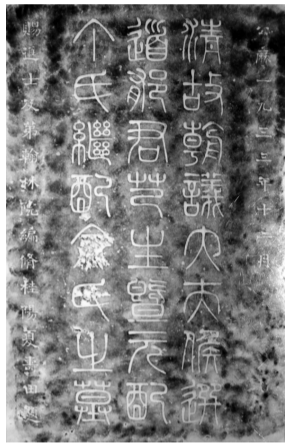 公曆一九三三年十二月
清故朝議大夫候選
道熊君芑生暨元配
氏繼配氏之墓
賜進士及第翰林院編脩桂陽夏壽田題